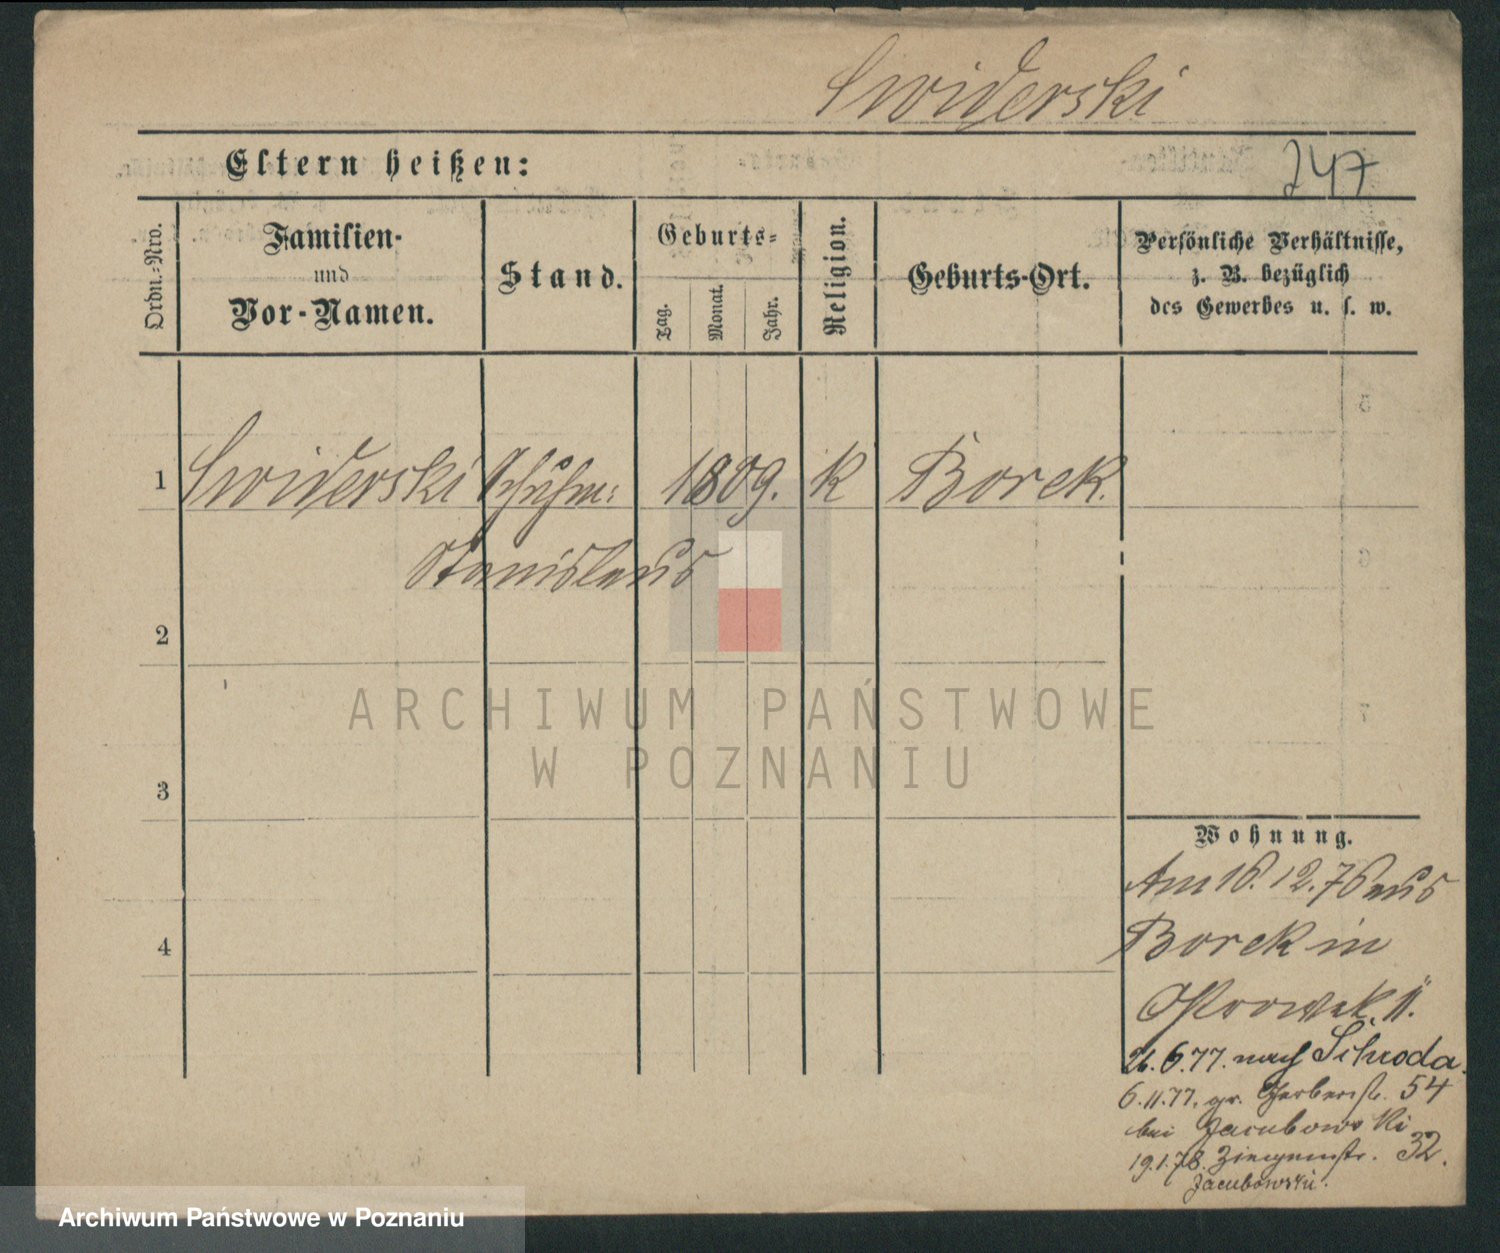 Swiderski
Eltern heißen:
247
Ordn.-Nro.
Familien-
und
Vor-Namen.
Stand.
Geburts-
Tag.
Monat.
Jahr.
Religion.
Geburts-Ort.
Persönliche Verhältnisse,
z. B. bezüglich
des Gewerbes u. s. w.
1 Swiderski Schuhm: 1809. k Borek.
Stanislaus
2
3
4
ARCHIWUM PAŃSTWOWE
W POZNANIU
Wohnung.
Am 16.12.76 aus
Borek in
11.
26.6.77. nach Schroda.
6.11.77. gr. Gerberstr. 54
bei Jacubowski
19.1.78. 32.
Jacubowski.
Archiwum Państwowe w Poznaniu